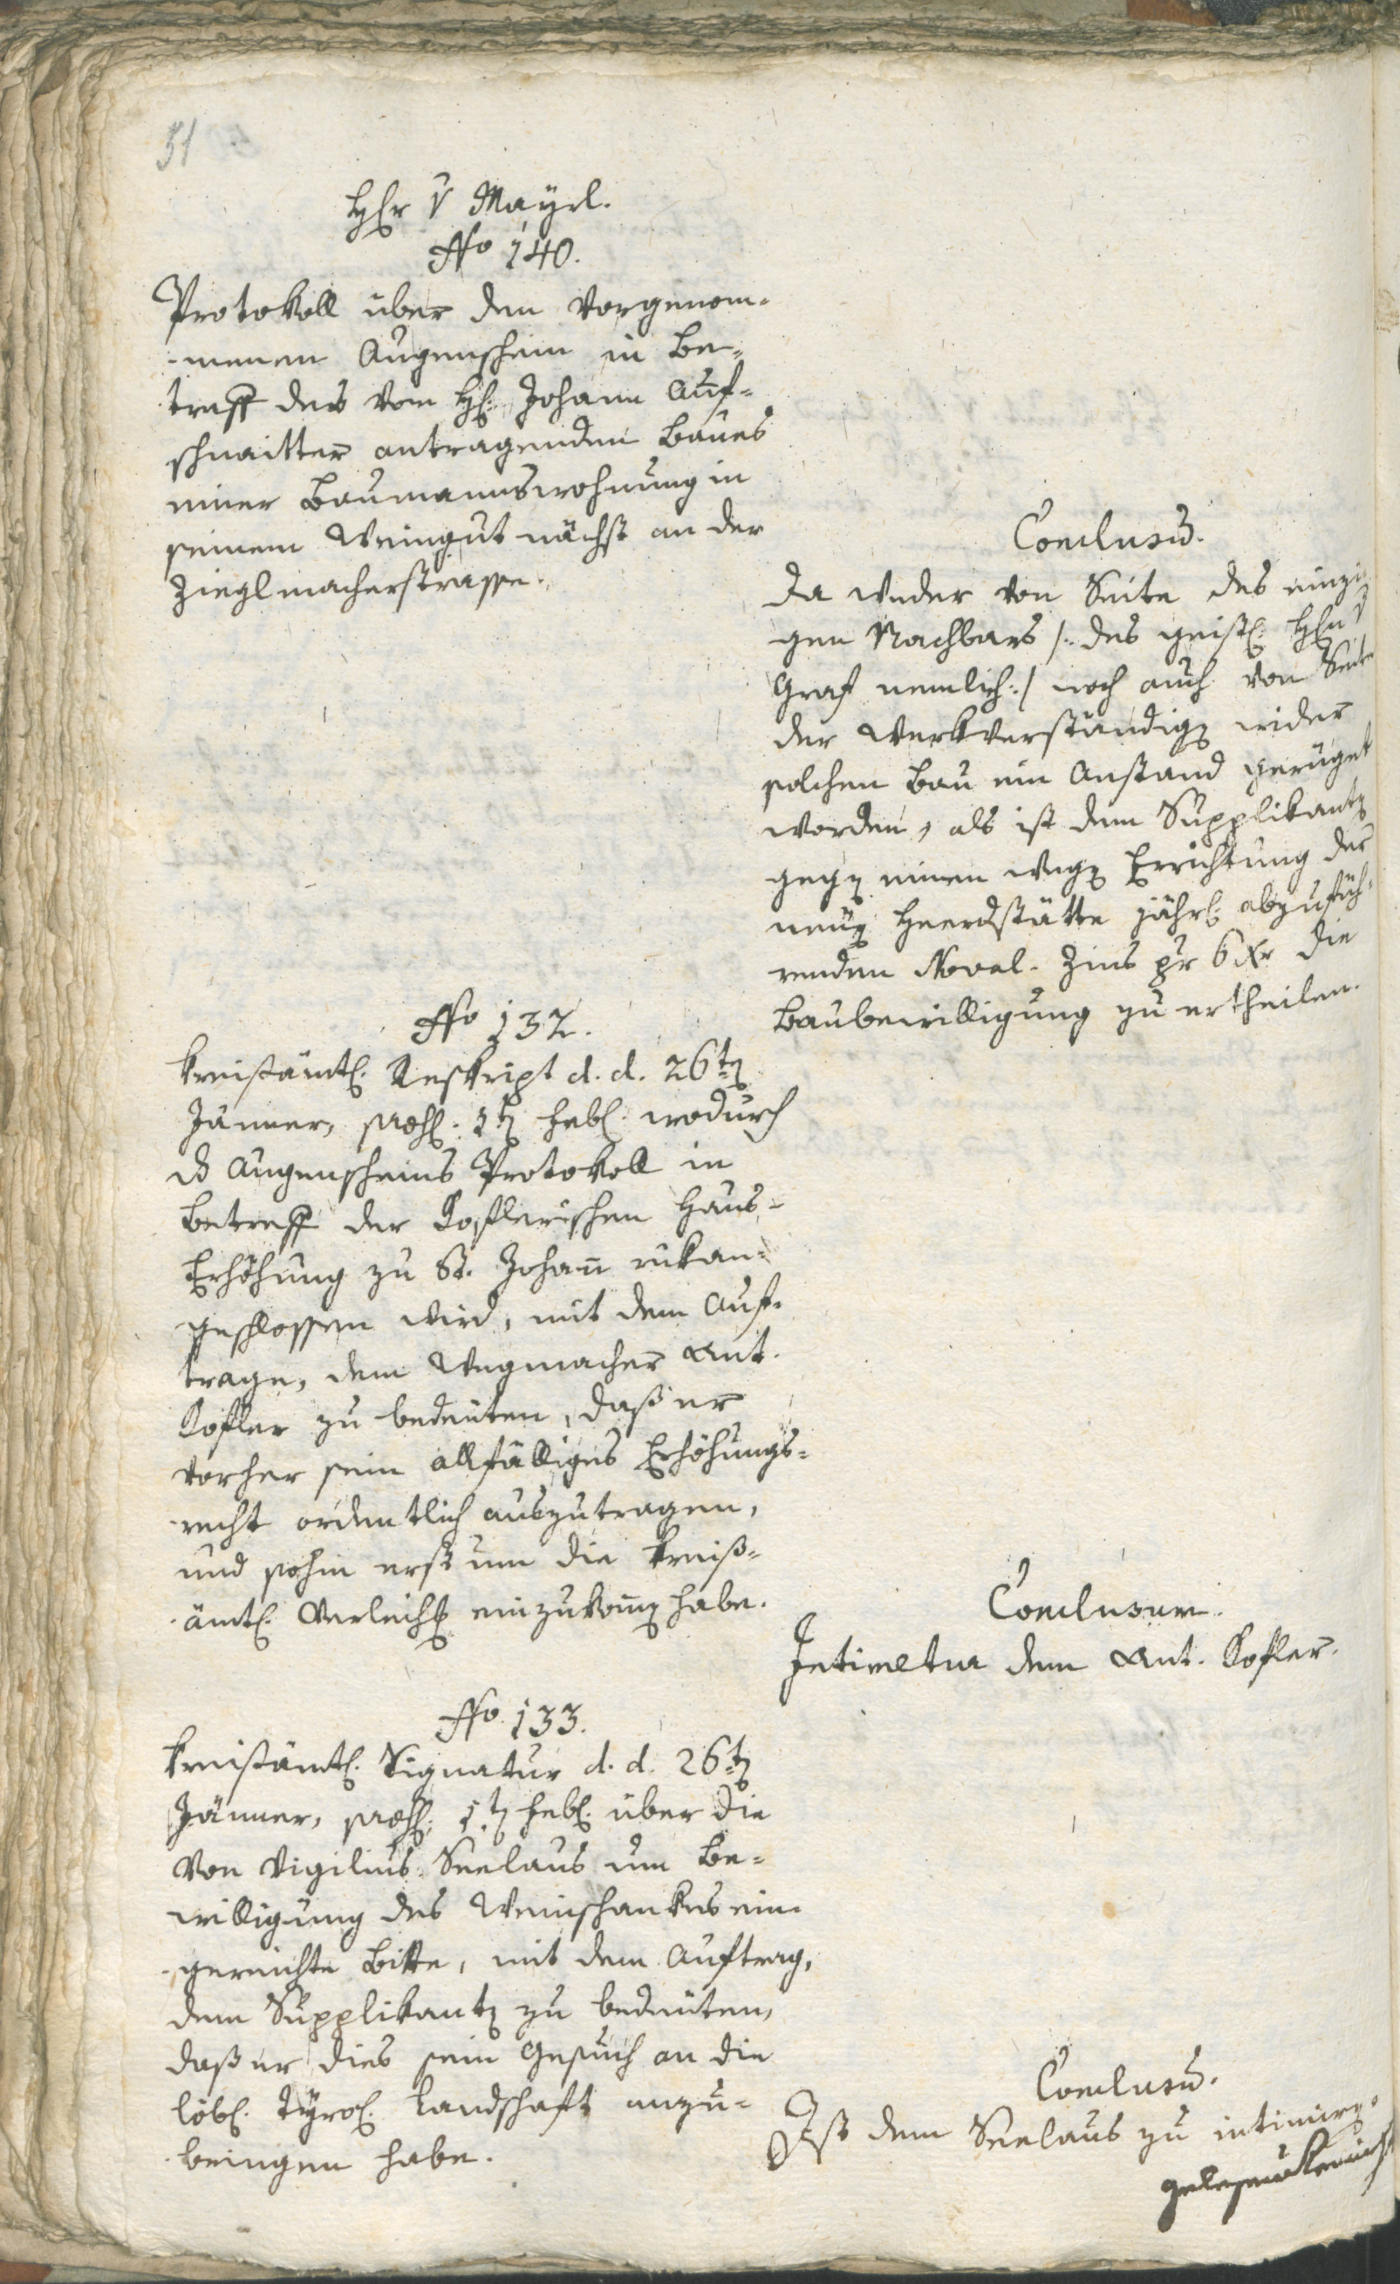 51
H[er]r v Mayrl.
No 140.
Protokoll über den vorgenom-
-menen Augenschein in Be-
treff des vom H: Johann Auf-
schnaitter antragenden Baues
einer Baumannswohnung in
seinem Weingut nächst an der
Zieglmacherstrasse.
Conclusū.
Da weder von Seite des einzi-
gen Nachbars /: des geistl: H[er]n v
Graf nemlich :/ noch auch von Seite
der Werkverständigen wider
solchen Bau ein Anstand gerüget
worden, als ist dem Supplikanten
gegen einen wegen Errichtung der
neuen Heerdstätte jährl: abzufüh-
renden Noval-Zins pr 6 Xr die
Baubewilligung zu ertheilen.
No 132.
Kreisämtl: Reskript d. d. 26ten
Jänner, 1ten Feb: wodurch
d Augenscheins Protokoll in
Betreff der Koflerischen Haus-
Erhöhung zu St. Johann rükan-
geschlossen wird, mit dem Auf-
trage, dem Wegmacher Ant.
Kofler zu bedeuten, daß er
vorher sein allfälliges Erhöhungs-
-recht ordentlich auszutragen,
und sohin erst um die Kreis-
-ämtl: einzukommen habe.
Conclusum.
Intimetur dem Ant. Kofler.
No 133.
Kreisämtl: Signatur d. d. 26ten
Jänner, 1ten Feb: über die
von Vigilius Seelaus um Be-
willigung des Weinschankes ein-
-gereichte Bitte, mit dem Auftrag,
dem Supplikanten zu bedeuten,
daß er dies sein Gesuch an die
löbl: Tyrol: Landschaft anzu-
-bringen habe.
Conclusū.
Ist dem Seelaus zu intimiren.